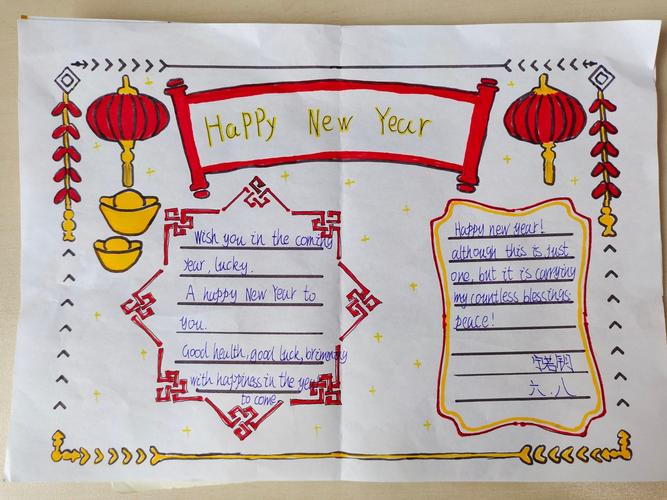 Happy New Year
Wish you in the coming
year, lucky.
A happy New Year to
you.
Good health, good luck, brimming
with happiness in the year
to come
Happy new year!
although this is just
one, but it is carrying
my countless blessings:
peace!
六.八